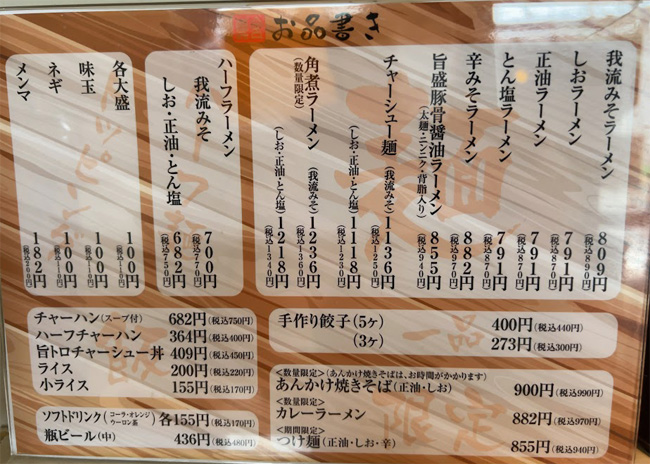 お品書き
我流みそラーメン 809円(税込890円)
しおラーメン 791円(税込870円)
正油ラーメン 791円(税込870円)
とん塩ラーメン 791円(税込870円)
辛みそラーメン 882円(税込970円)
旨盛豚骨醤油ラーメン 855円(税込940円)
(太麺・ニンニク・背脂入り)
チャーシュー麺 (我流みそ)1136円(税込1250円)
(しお・正油・とん塩)1118円(税込1230円)
角煮ラーメン (我流みそ)1236円(税込1360円)
(数量限定)
(しお・正油・とん塩)1218円(税込1340円)
ハーフラーメン
我流みそ 700円(税込770円)
しお・正油・とん塩 682円(税込750円)
各大盛 100円(税込110円)
味玉 100円(税込110円)
ネギ 100円(税込110円)
メンマ 182円(税込200円)
チャーハン(スープ付) 682円(税込750円)
ハーフチャーハン 364円(税込400円)
旨トロチャーシュー丼 409円(税込450円)
ライス 200円(税込220円)
小ライス 155円(税込170円)
ソフトドリンク(コーラ・オレンジ ウーロン茶) 各155円(税込170円)
瓶ビール(中) 436円(税込480円)
手作り餃子(5ヶ) 400円(税込440円)
(3ヶ) 273円(税込300円)
<数量限定>(あんかけ焼きそばは、お時間がかかります)
あんかけ焼きそば(正油・しお) 900円(税込990円)
<数量限定>
カレーラーメン 882円(税込970円)
<期間限定>
つけ麺(正油・しお・辛) 855円(税込940円)
麺
トッピング
一品
限定